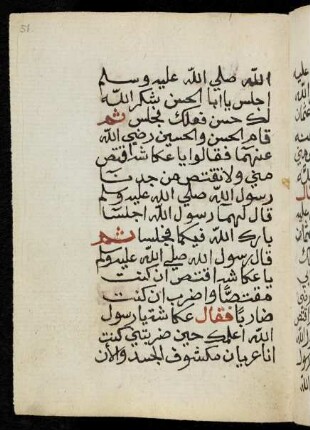 51
الله صلي الله عليه وسلم
اجلس يا ابا الحسن شكر الله
لك حسن فعلك فجلس ثم
قام الحسن والحسين رضي الله
عنهما فقالوا يا عكاشه اقتص
مني ولا تقتص من جدنا
رسول الله صلي الله عليه وسلم
قال لهما رسول الله اجلسا
بارك الله فيكما فجلسا ثم
قال رسول الله صلي الله عليه وسلم
يا عكاشه اقتص ان كنت
مقتصا واضرب ان كنت
ضاربا فقال عكاشه يا رسول
الله اعلمك حين ضربتني كنت
انا عريان مكشوف الجسد والأن